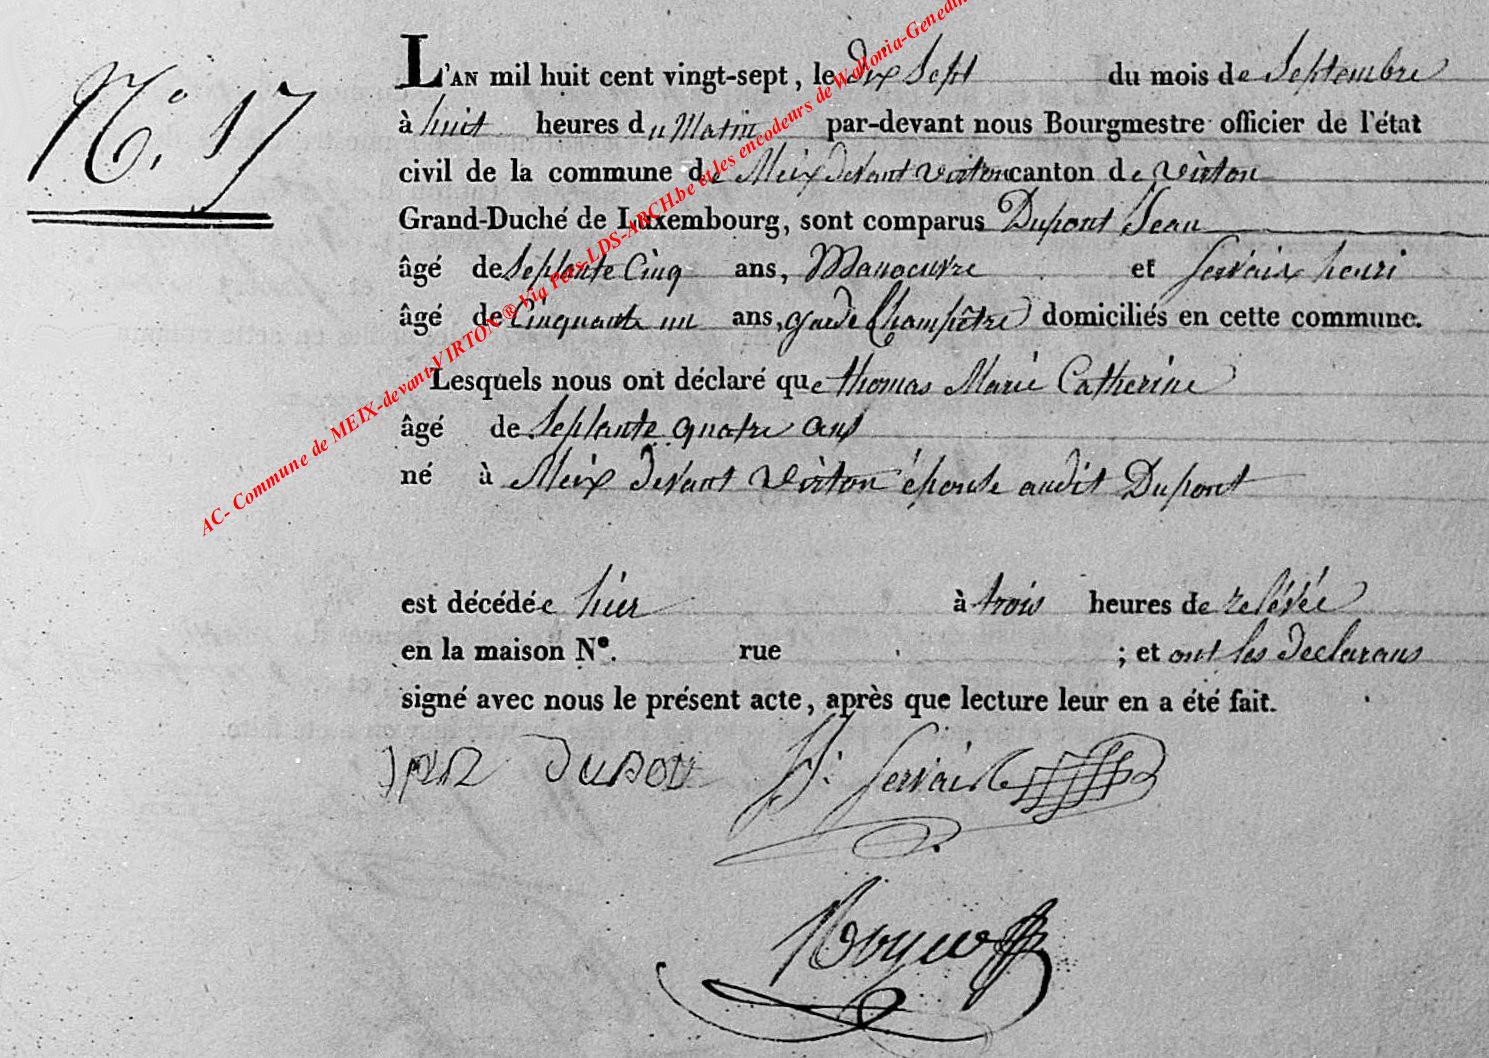 N.° 17
L'AN mil huit cent vingt-sept, le dix Sept du mois de Septembre
à huit heures du Matin par-devant nous Bourgmestre officier de l'état
civil de la commune de Meix devant virton canton de virton
Grand-Duché de Luxembourg, sont comparus Dupont Jean
âgé de Septante Cinq ans, Manoeuvre et Servais henri
âgé de Cinquante un ans, garde Champêtre domiciliés en cette commune.
Lesquels nous ont déclaré que thomas Marie Catherine
âgé de Septante quatre ans
né à Meix devant Virton épouse audit Dupont
est décédée hier à trois heures de relévée
en la maison N°. rue ; et ont les declarans
signé avec nous le présent acte, après que lecture leur en a été fait.
H. Servais
AC- Commune de MEIX-devant-VIRTON ® Via Pers-LDS-ARCH.be et les encodeurs de Wallonia-Genealo